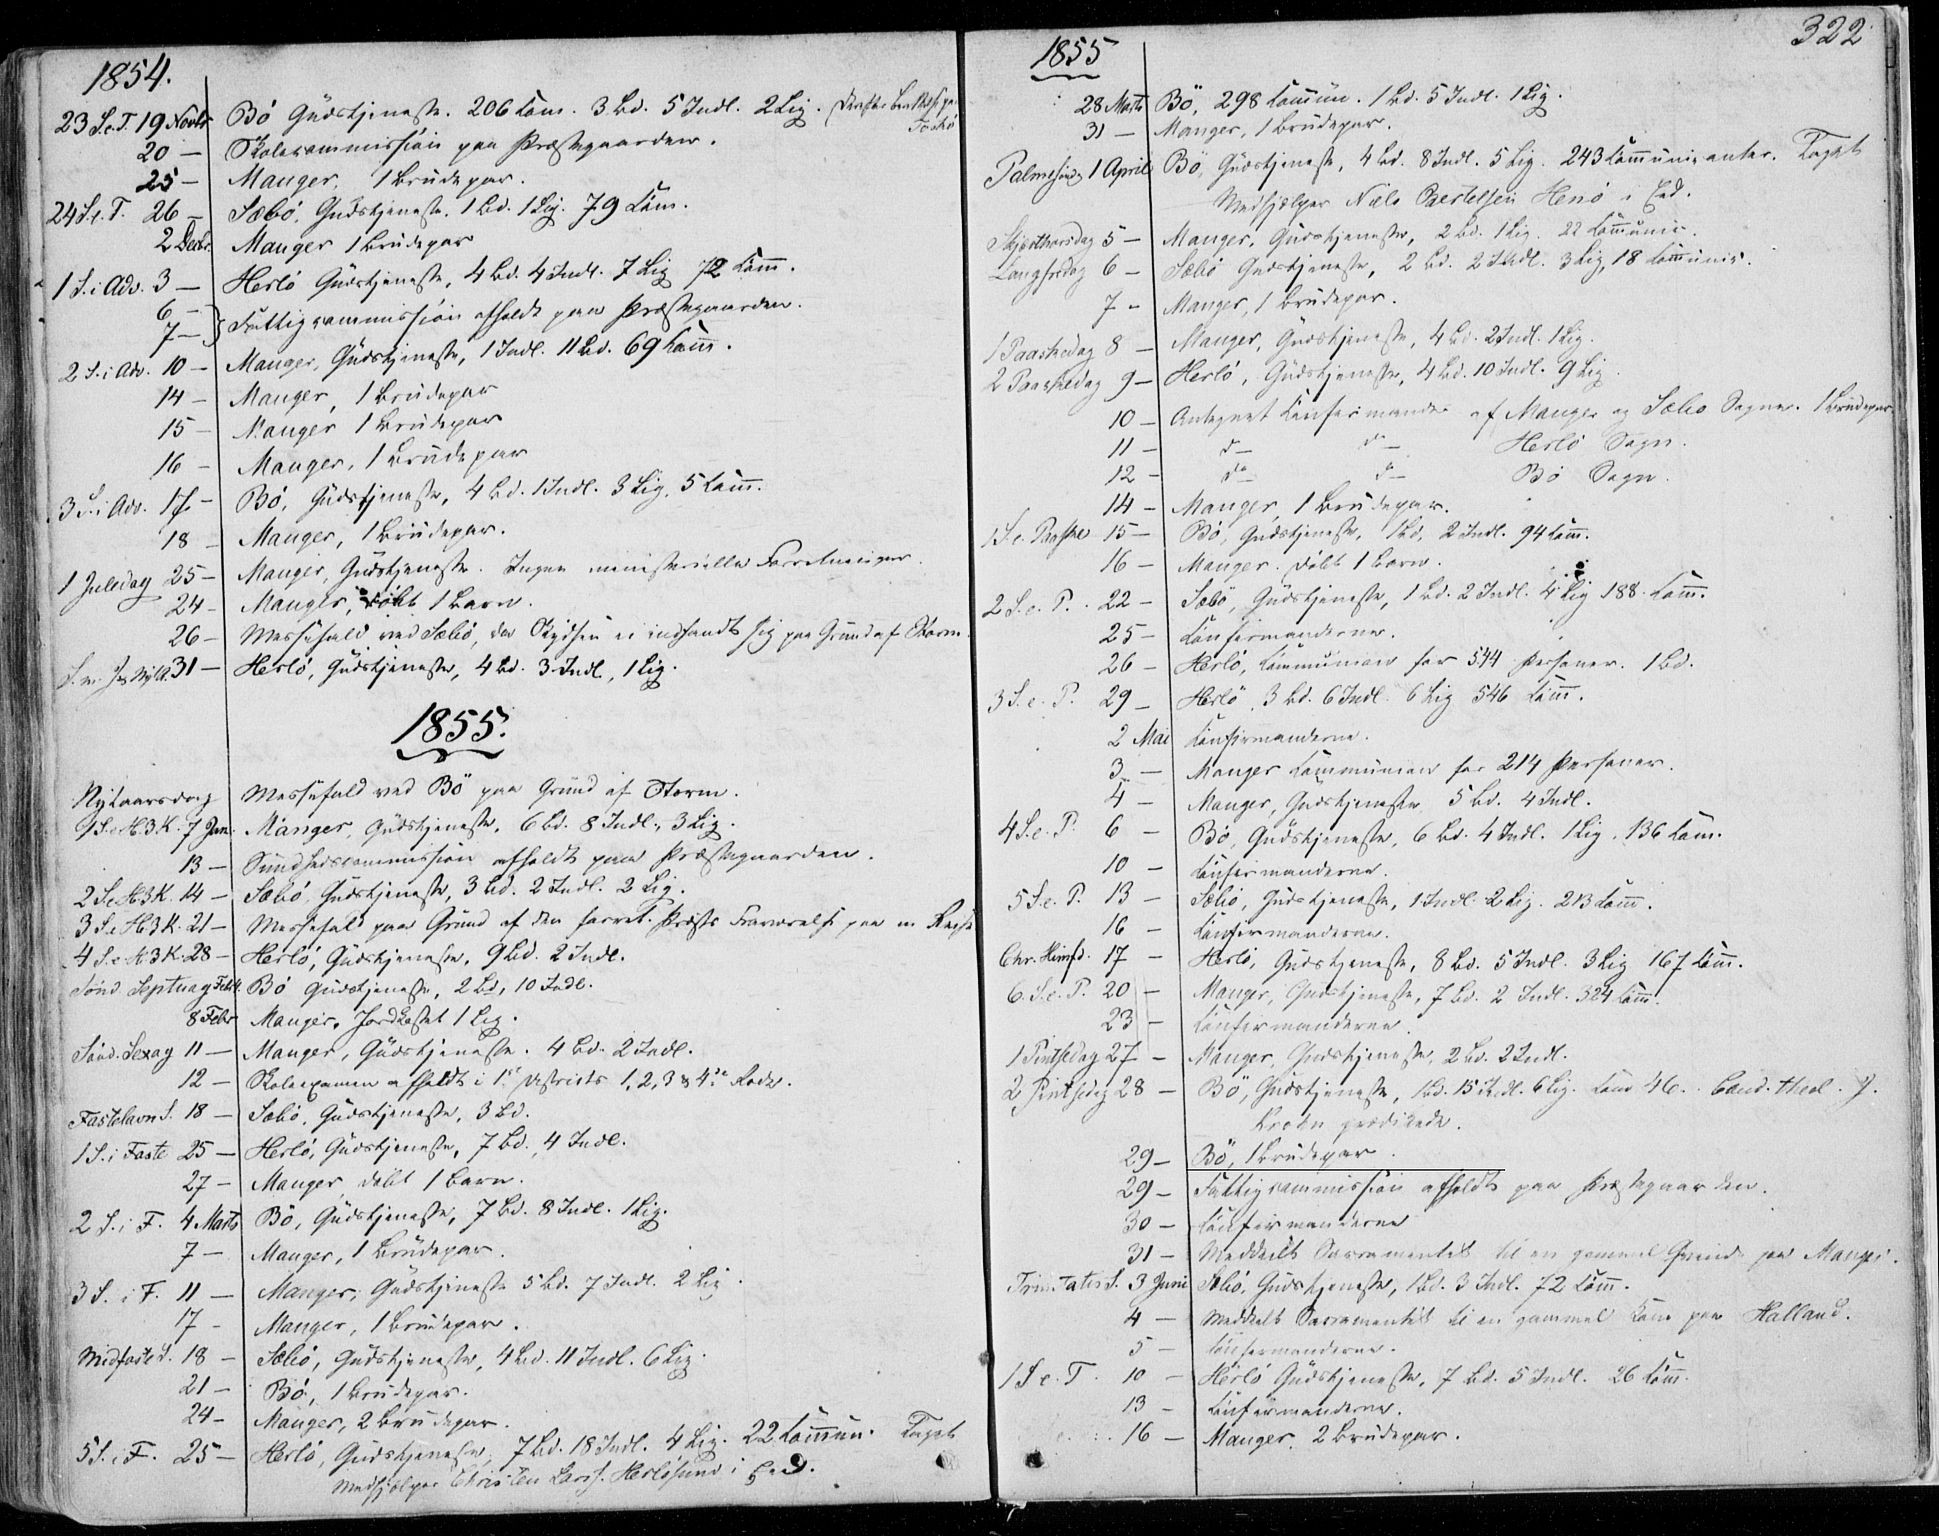 1854.
23 S.e.T. 19 Novbr Bö Gudstjeneste. 206 Com. 3 Bd. 5 Indl. 2 Lig.
20 — Skolecommission paa Præstegaarden.
25 — Manger, 1 Brudepar.
24 S.e.T. 26 — Sæbö, Gudstjeneste. 1 Bd. 1 Lig. 79 Com.
2 Decbr. Manger 1 Brudepar
1 S. i Adv. 3 — Herlö Gudstjeneste, 4 Bd. 4 Indl. 7 Lig 72 Comm.
6 —
7 — } Fattigcommission afholdt paa Præstegaarden.
2 S. i Adv. 10 — Manger, Gudstjeneste, 1 Indl. 11 Bd. 69 Comm.
14 — Manger, 1 Brudepar
15 — Manger 1 Brudepar
16 — Manger, 1 Brudepar
3 S. i Adv. 17 — Bö, Gudstjeneste, 4 Bd. 1 Indl. 3 Lig, 5 Comm.
18 — Manger, 1 Brudepar.
1 Juledag 25 — Manger, Gudstjeneste. Ingen ministerielle Forretninger.
24 — Manger, döbt 1 Barn.
26 — Messefald ved Sæbö, da Skydsen ei indfandt sig paa Grund af Storm.
31 — Herlö, Gudstjeneste, 4 Bd. 3 Indl., 1 Lig.
1855.
Nytaarsdag Messefald ved Bö paa Grund af Storm.
1 S.e.H3K. 7 Jan. Manger, Gudstjeneste, 6 Bd. 8 Indl., 3 Lig.
13 — Sundhedscommission afholdt paa Præstegaarden.
2 S.e.H3K. 14 — Sæbö, Gudstjeneste, 3 Bd. 2 Indl. 2 Lig.
3 S.e.H3K. 21 — Messefald paa Grund af den forret. Præsts Fraværelse paa en Reise
4 S.e.H3K. 28 — Herlö, Gudstjeneste, 9 Bd. 2 Indl.
Sönd. Septuag Febr 4. Bö Gudstjeneste, 2 Bd, 10 Indl.
8 Febr Manger, Jordkastet 1 Lig.
Sönd. Sexag 11 — Manger, Gudstjeneste. 4 Bd. 2 Indl.
12 — Skoleexamen afholdt i 1ste Districts 1, 2, 3 & 4de Rode.
Fastelavn S. 18 — Sæbö, Gudstjeneste, 3 Bd.
1 S. i Faste 25 — Herlö, Gudstjeneste, 7 Bd., 4 Indl.
27 — Manger, döbt 1 Barn.
2 S. i F. 4 Marts Bö, Gudstjeneste, 7 Bd. 8 Indl. 1 Lig.
7 — Manger, 1 Brudepar.
3 S. i F. 11 — Manger, Gudstjeneste 5 Bd. 7 Indl. 2 Lig.
17 — Manger, 1 Brudepar.
Midfaste S. 18 — Sæbö, Gudstjeneste, 4 Bd. 11 Indl. 6 Lig.
21 — Bö, 1 Brudepar.
24 — Manger, 2 Brudepar.
5 S. i F. 25 — Herlö, Gudstjeneste, 7 Bd. 18 Indl. 4 Lig. 22 Commun. Taget
Medhjelper Christen Larss. Herlösund i Eed.
322
1855
28 Marts Bö, 298 Commun. 1 Bd. 5 Indl. 1 Lig.
31 — Manger, 1 Brudepar.
Palmesönd. 1 April Bö, Gudstjeneste, 4 Bd. 8 Indl. 5 Lig. 243 Communicanter. Taget
Medhjælper Niels Bertelsen Henö i Eed.
Skjærthorsdag 5 — Manger, Gudstjeneste, 2 Bd. 1 Lig. 22 Communic.
Langfredag 6 — Sæbö Gudstjeneste, 2 Bd. 2 Indl. 3 Lig, 18 Communic.
7 — Manger, 1 Brudepar.
1 Paaskedag 8 — Manger, Gudstjeneste, 4 Bd. 2 Indl. 1 Lig.
2 Paaskedag 9 — Herlö, Gudstjeneste, 4 Bd. 10 Indl. 9 Lig.
10 — Antegnet Confirmander af Manger og Sæbö Sogne. 1 Brudepar
11 — do — do — Herlö Sogn.
12 — do — do — Bö Sogn.
14 — Manger, 1 Brudepar.
1 S.e. Paaske 15 — Bö, Gudstjeneste, 1 Bd. 2 Indl. 94 Comm.
16 — Manger. döbt 1 Barn.
2 S.e.P. 22 — Sæbö, Gudstjeneste, 1 Bd. 2 Indl. 4 Lig 188 Comm.
25 — Confirmanderne.
26 — Herlö, Communion for 544 Personer. 1 Bd.
3 S.e.P. 29 — Herlö, 3 Bd. 6 Indl. 6 Lig 546 Comm.
2 Mai Confirmanderne.
3 — Manger Communion for 214 Personer.
4 — Manger, Gudstjeneste 5 Bd. 4 Indl.
4 S.e.P. 6 — Bö, Gudstjeneste, 6 Bd. 4 Indl. 1 Lig. 136 Com.
10 — Confirmanderne.
5 S.e.P. 13 — Sæbö, Gudstjeneste, 1 Indl. 2 Lig. 213 Comm.
16 — Confirmanderne.
Chr. Himfd. 17 — Herlö, Gudstjeneste, 8 Bd. 5 Indl. 3 Lig 167 Comm.
6 S.e.P. 20 — Manger, Gudstjeneste, 7 Bd. 2 Indl. 324 Comm.
23 — Confirmanderne.
1 Pintsedag 27 — Manger, Gudstjeneste, 2 Bd. 2 Indl.
2 Pintsedag 28 — Bö, Gudstjeneste, 1 Bd. 15 Indl. 6 Lig. Com 46. Cand. theol. J.
Krohn prædikede.
29 — Bö, 1 Brudepar.
29 — Fattigcommission afholdt paa Præstegaarden.
30 — Confirmanderne
31 — Meddeelt Sacramentet til en gammel Qvinde paa Manger.
Trinitatis S. 3 Juni Sæbö, Gudstjeneste, 1 Bd. 3 Indl. 72 Comm.
4 — Meddelt Sacramentet til en gammel Kone paa Halland.
5 — Confirmanderne.
1 S.e.T. 10 — Herlö Gudstjeneste, 7 Bd. 5 Indl. 26 Comm.
13 — Confirmanderne.
16 — Manger, 2 Brudepar.